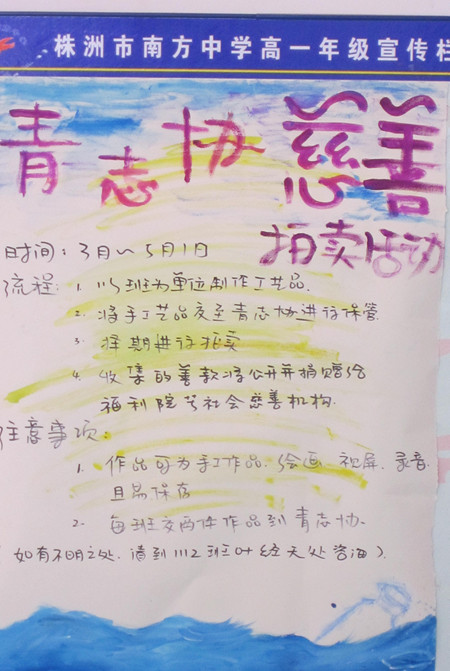 株洲市南方中学高一年级宣传栏
青志协慈善
拍卖活动
时间：3月～5月1日
流程：1. 以班为单位制作工艺品.
2. 将手工艺品交至青志协进行保管
3. 择期进行拍卖
4. 收集的善款将公开并捐赠给
福利院等社会慈善机构.
注意事项：
1. 作品可为手工作品. 绘画. 视屏. 录音.
且易保存
2. 每班交两件作品到青志协.
如有不明之处. 请到1112班叶经天处咨询).